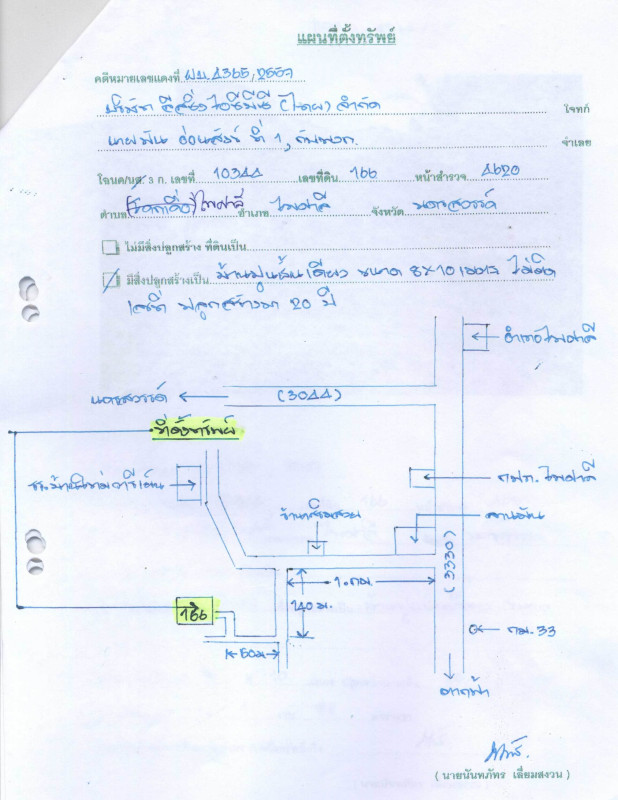 แผนที่ตั้งทรัพย์
คดีหมายเลขแดงที่ ผบ. 4365/2557
บริษัท (ไทย) จำกัด โจทก์
ที่ 1, กับพวก จำเลย
โฉนด/นส. 3 ก. เลขที่ 10344 เลขที่ดิน 166 หน้าสำรวจ 4620
ตำบล ไพศาลี อำเภอ ไพศาลี จังหวัด นครสวรรค์
ไม่มีสิ่งปลูกสร้าง ที่ดินเป็น
มีสิ่งปลูกสร้างเป็น บ้านปูนชั้นเดียว ขนาด 8x10 เมตร ไม่ติด
เลขที่ ปลูกสร้างมา 20 ปี
อำเภอไพศาลี
นครสวรรค์
(3044)
ที่ตั้งทรัพย์
กฟภ. ไพศาลี
ลานมัน
ร้านเสริมสวย
(3330)
1. กม.
166
140 ม.
50ม
กม. 33
ตากฟ้า
( นายนันทภัทร เลี่ยมสงวน )